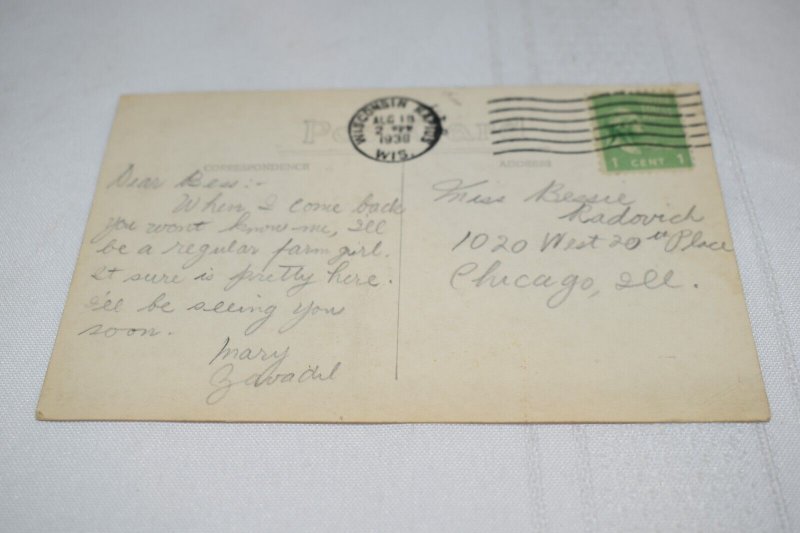 WISCONSIN RAPIDS
AUG 18
2 PM
1938
WIS.
Post Card
CORRESPONDENCE
ADDRESS
1 CENT 1
Dear Bess:-
When I come back
you wont know me, I'll
be a regular farm girl.
It sure is pretty here.
I'll be seeing you
soon.
Mary
Zavadil
Miss Bessie
Radovich
1020 West 20th Place
Chicago, Ill.